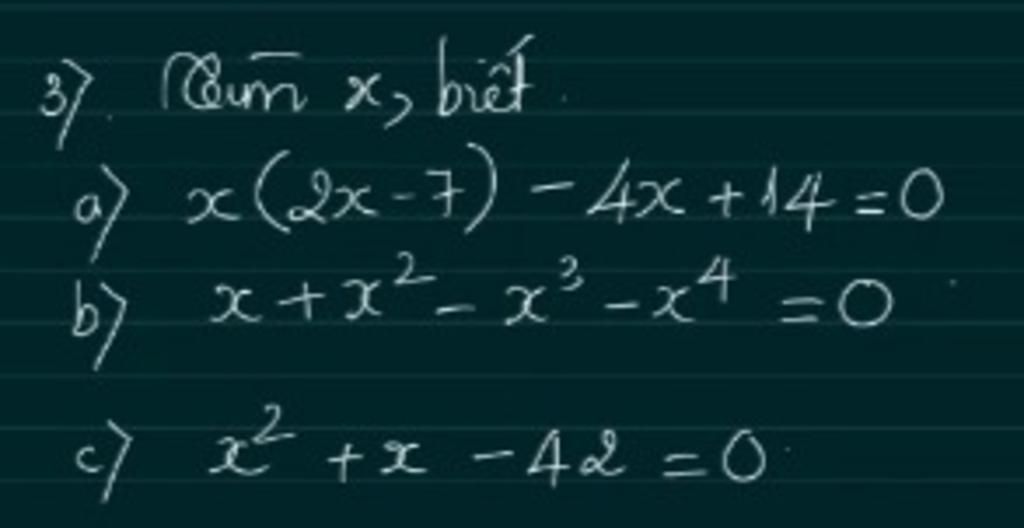 3). Tìm x, biết.
a) x(2x-7) - 4x + 14 = 0
b) x + x² - x³ - x⁴ = 0
c) x² + x - 42 = 0